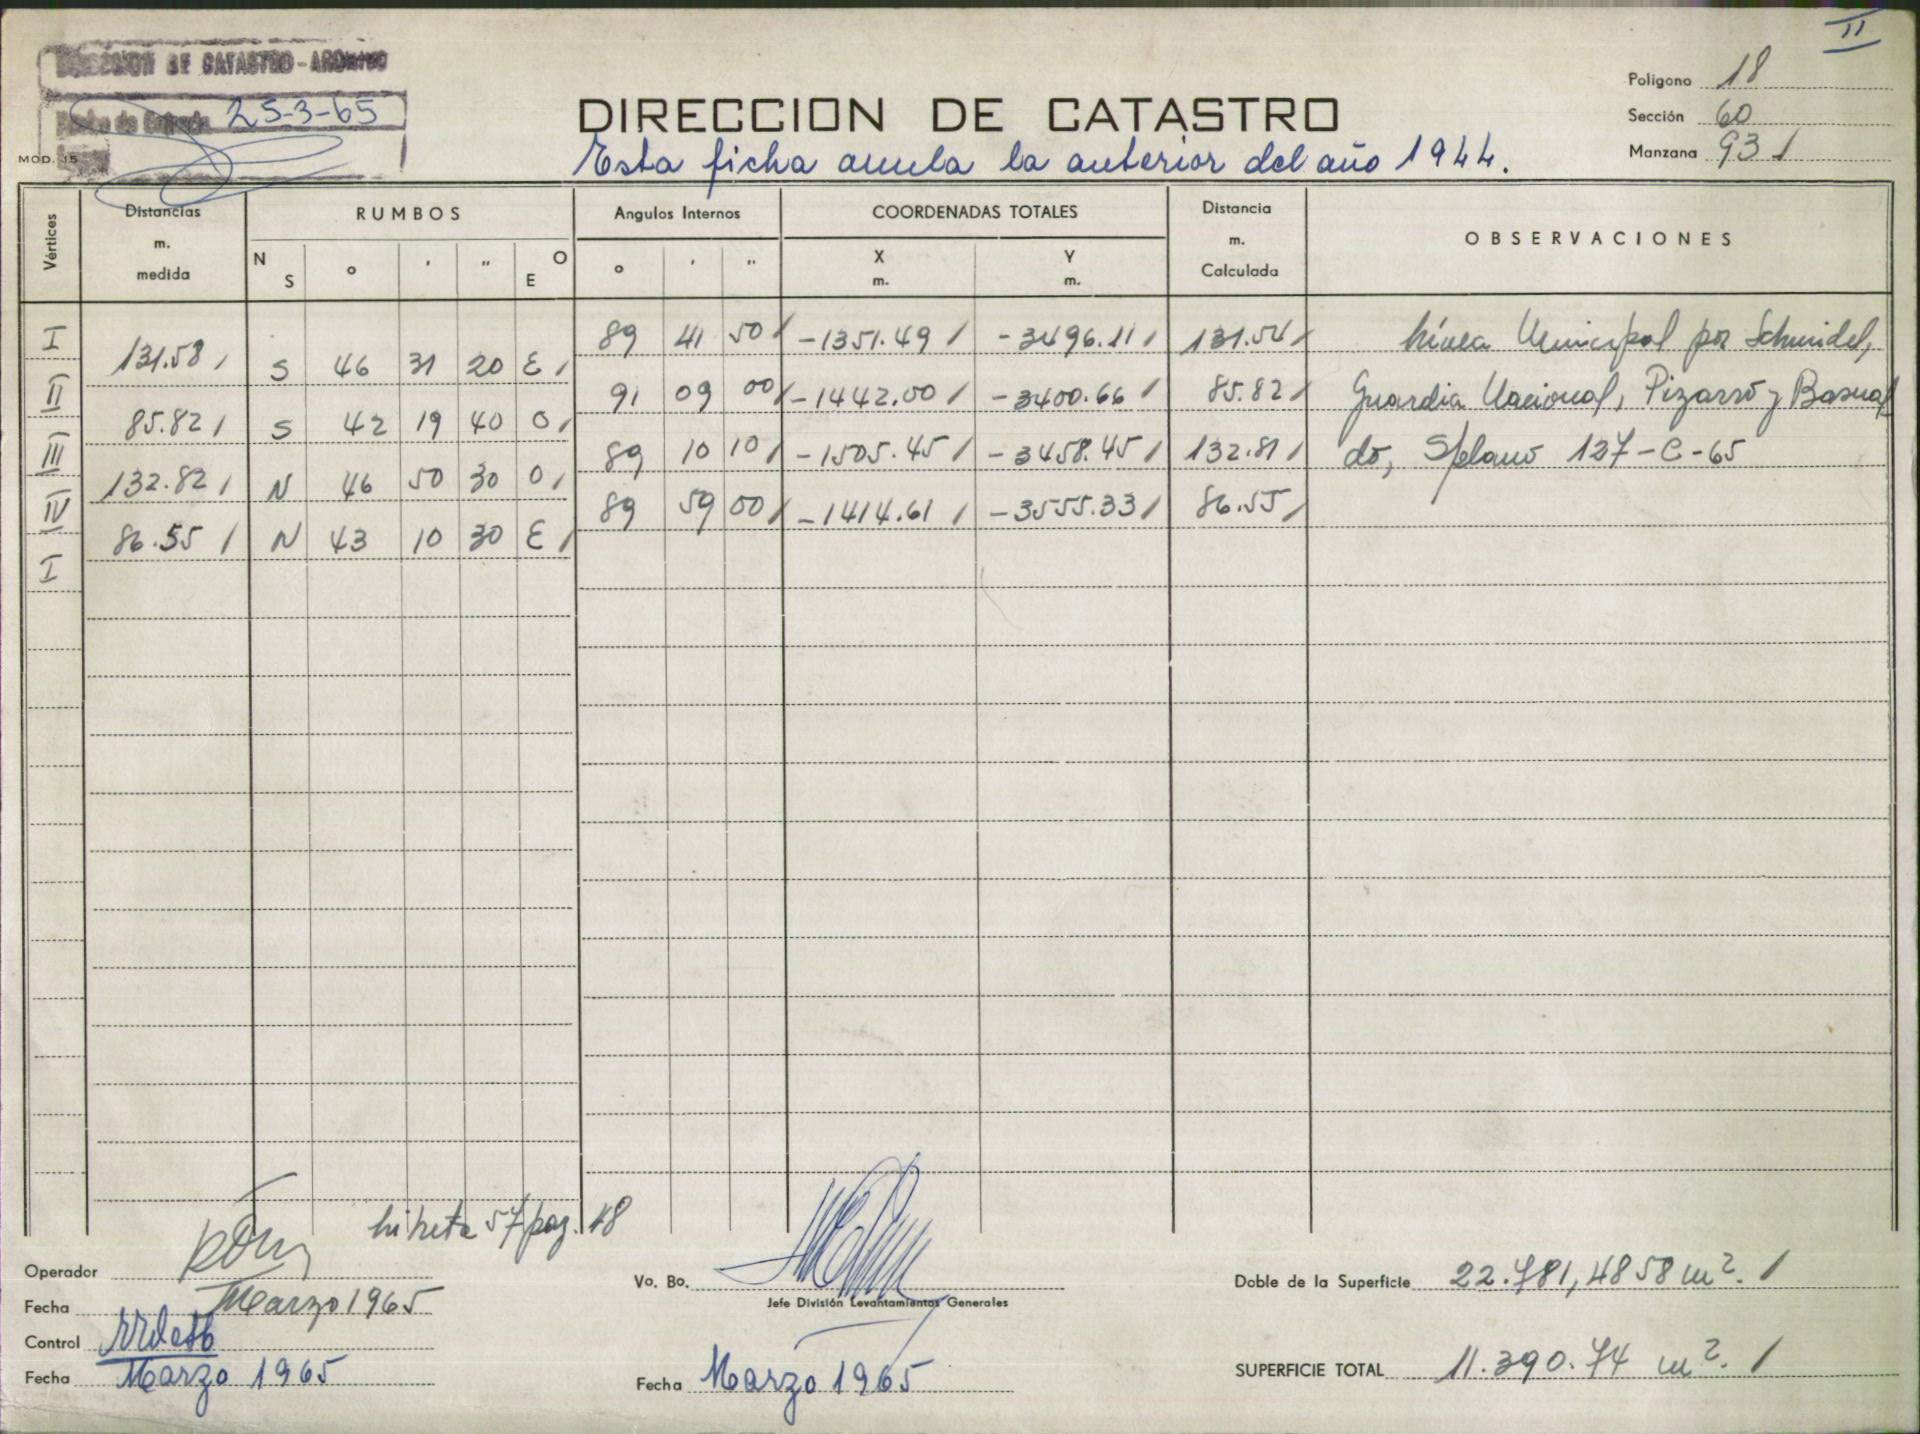 II
DIRECCION DE CATASTRO - ARCHIVO
Fecha de Entrada 25-3-65
MOD. 15
DIRECCION DE CATASTRO
Esta ficha anula la anterior del año 1944.
Poligono 18
Sección 60
Manzana 93 /
Vértices
Distancias m. medida
RUMBOS
N S ° ' " O E
Angulos Internos
° ' "
COORDENADAS TOTALES
X m. Y m.
Distancia m. Calculada
OBSERVACIONES
I 89 41 50 / -1351.49 / -3496.11 / 131.54 / Línea Municipal por Schmidel,
131.58 / S 46 31 20 E /
II 91 09 00 / -1442.00 / -3400.66 / 85.82 / Guardia Nacional, Pizarro y Basual
85.82 / S 42 19 40 O /
III 89 10 10 / -1505.45 / -3458.45 / 132.81 / do, S/plano 127-C-65
132.82 / N 46 50 30 O /
IV 89 59 00 / -1414.61 / -3555.33 / 86.55 /
86.55 / N 43 10 30 E /
I
Libreta 57 pag. 18
Operador
Fecha Marzo 1965
Control
Fecha Marzo 1965
Vo. Bo.
Jefe División Levantamientos Generales
Fecha Marzo 1965
Doble de la Superficie 22.781,4858 m². /
SUPERFICIE TOTAL 11.390.74 m². /